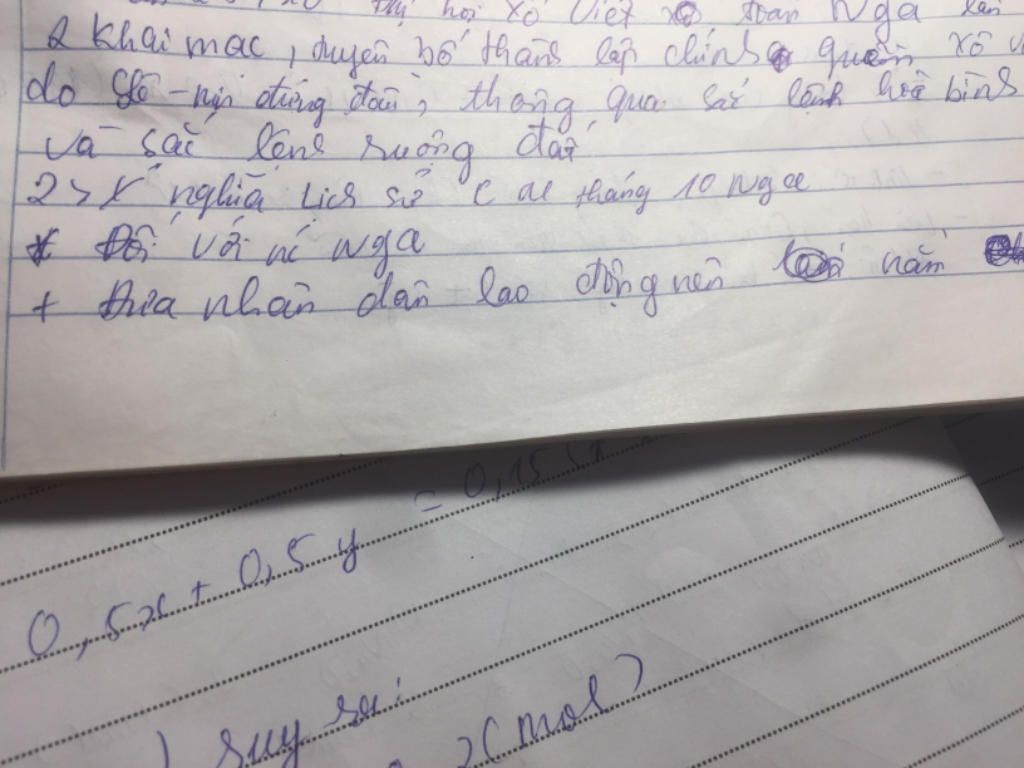 hội Xô Viết toàn Nga lần
2 khai mạc, tuyên bố thành lập chính quyền Xô V
do Lê-nin đứng đầu, thông qua sắc lệnh hoà bình
và sắc lệnh ruộng đất
2> Ý nghĩa Lịch sử C M tháng 10 Nga
* Đối với nc Nga
+ Đưa nhân dân lao động nên nắm
0,5x + 0,5y = 0,15
suy ra:
(mol)